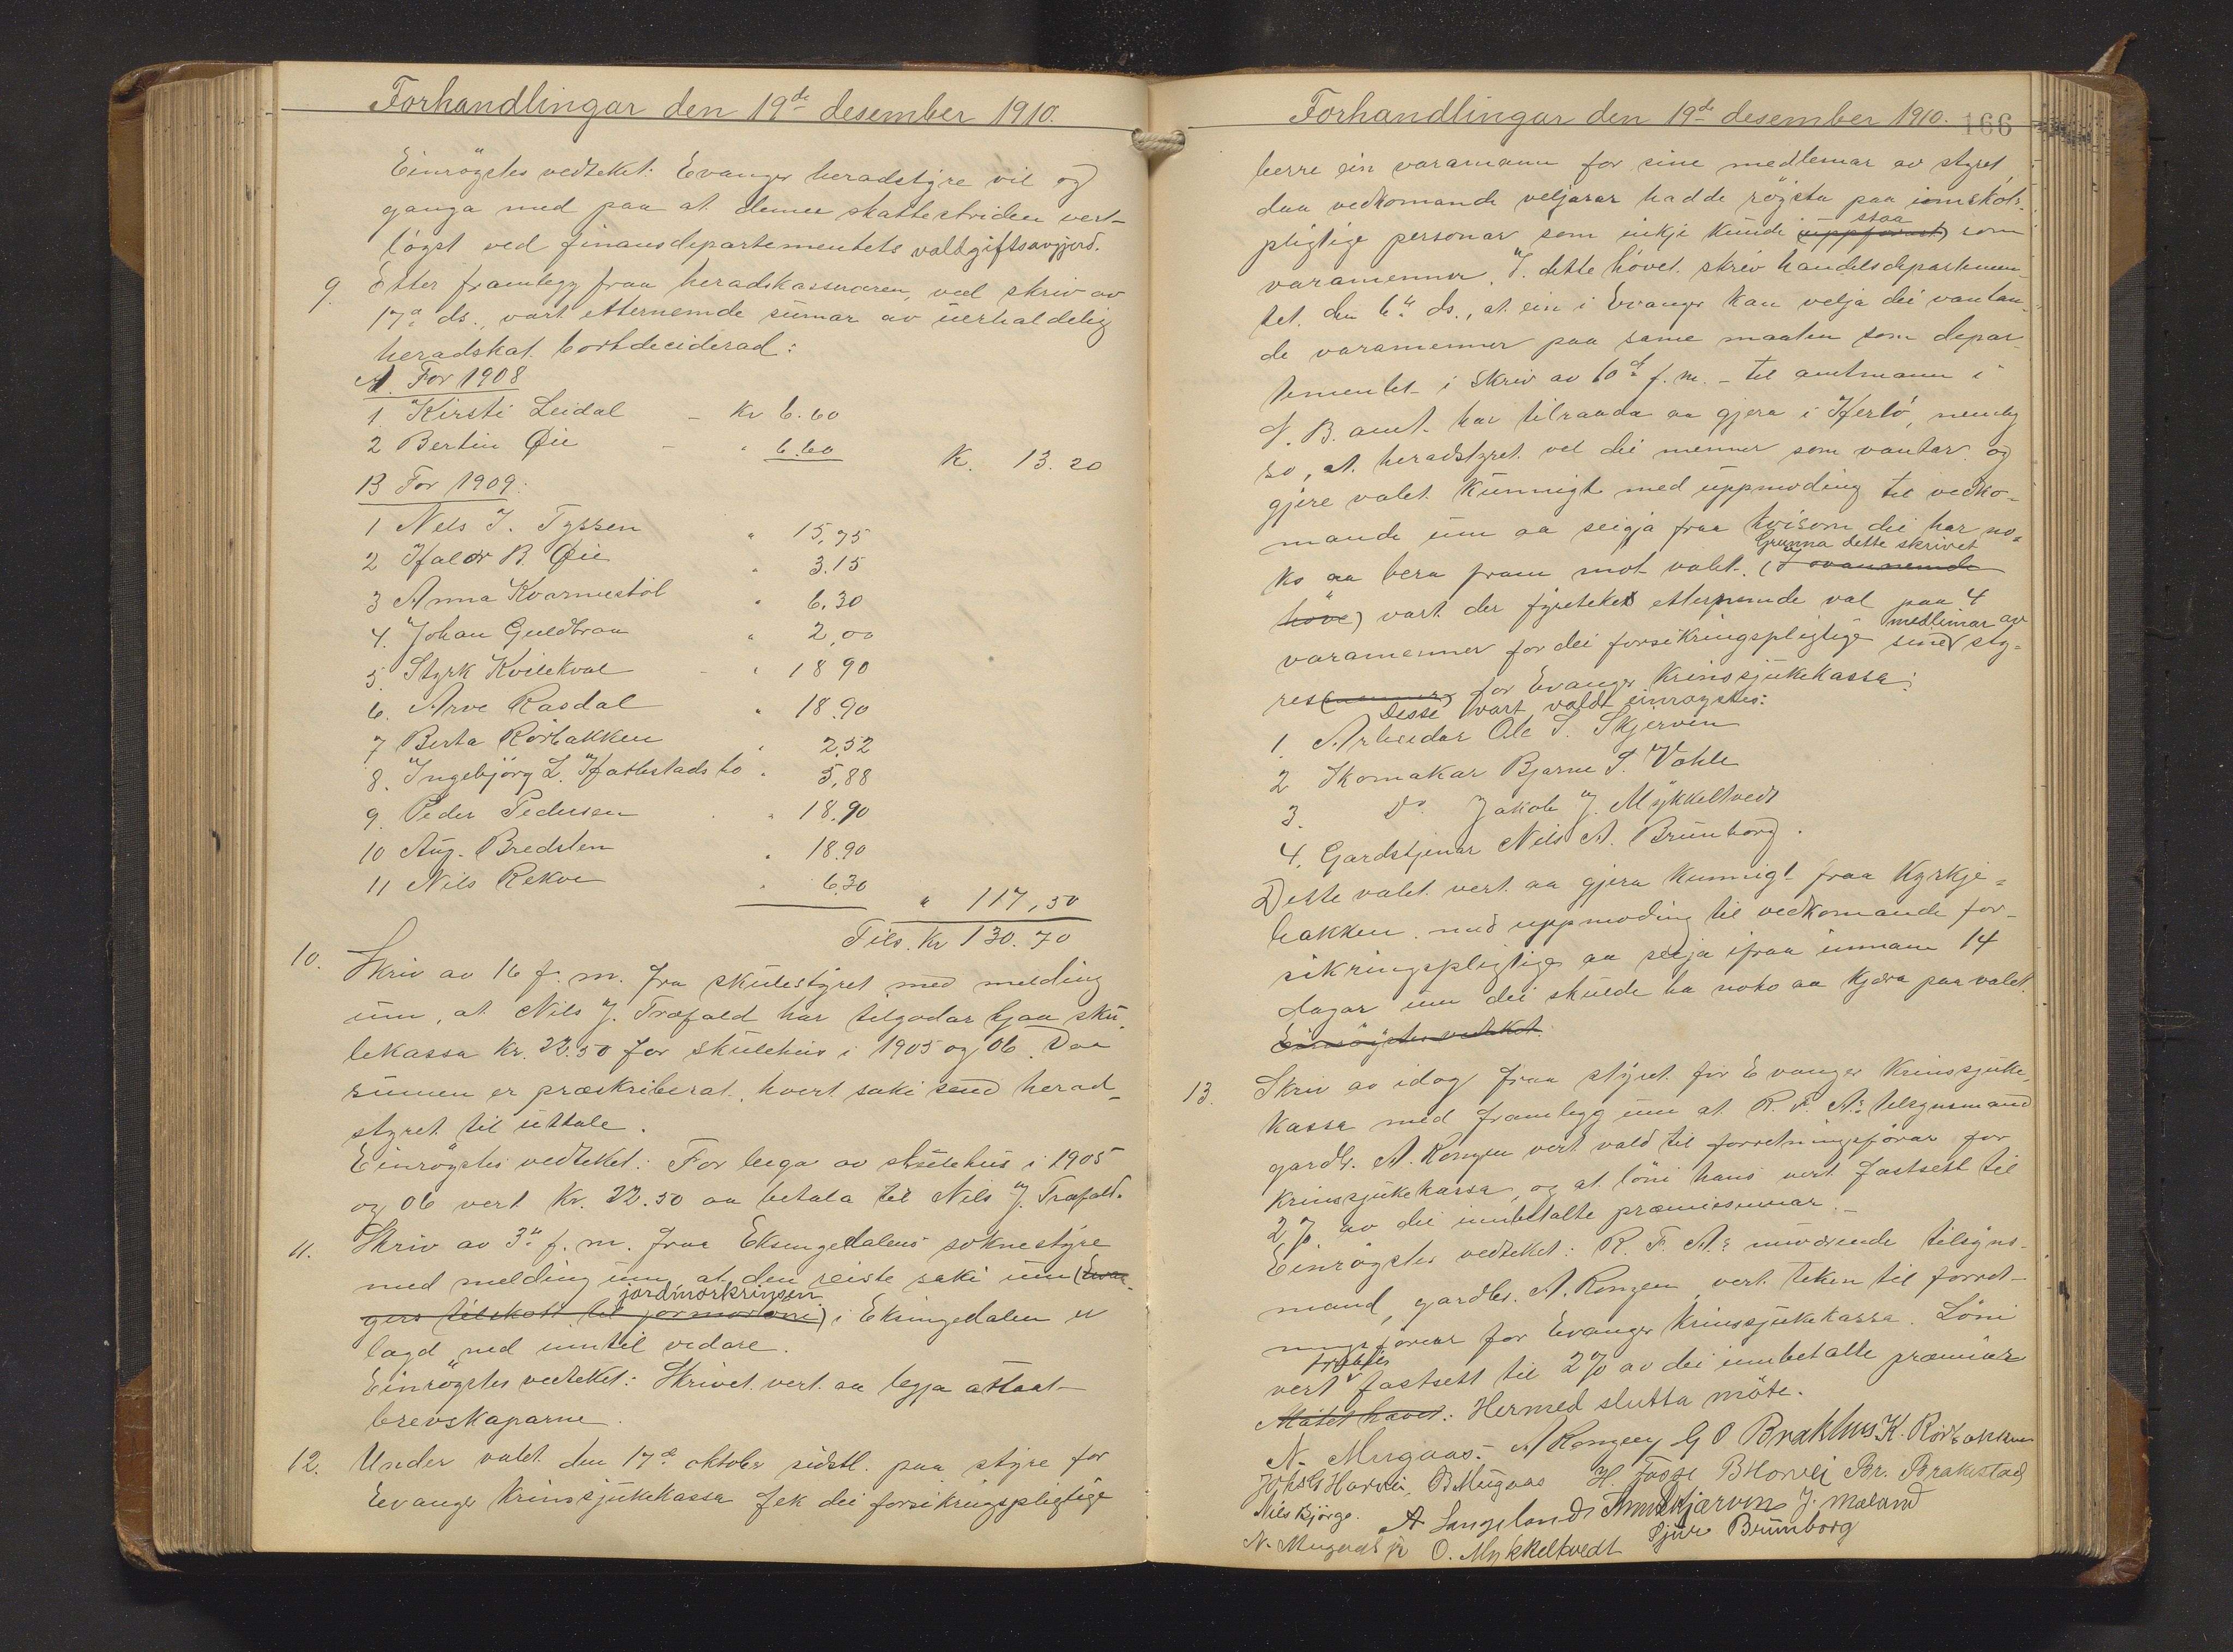 Forhandlingar den 19de desember 1910.
Einrögstes vedteket: Evanger heradstyre vil og
ganga med paa at denne skattestriden vert
lögst ved finansdepartementets valdgiftsavgjerd.
9. Etter framlegg fraa heradskasseraren, ved skriv av
17de ds., vart etternemde sumar av uerhaldelig
heradskat bortdeciderad:
A. For 1908
1. Kirsti Leidal - Kr 6.60
2 Bertin Øie - " 6.60 K. 13.20
B For 1909:
1 Nels J. Tyssen " 15,75
2 Haldr B. Øie " 3.15
3 Anna Kvarmestöl " 6.30
4. Johan Guldbran " 2,00
5. Styrk Kvilekval - " 18 90
6. Arve Rasdal " 18.90
7 Berta Rörbakken " 2,52
8. Ingebjörg L. Hatlestads bo " 5,88
9. Peder Pedersen " 18.90
10 Aug. Bredsten " 18.90
11 Nils Rekve " 6.30 " 117,50
Tils. Kr 130.70
10. Skriv av 16 f. m. fra skulestyret med melding
um, at Nils J. Træfald har tilgodar hjaa sku-
lekassa Kr. 22.50 for skulehus i 1905 og 06. Daa
sumen er præskriberat, hvert saki send herad-
styret til uttale.
Einrögstes vedteket: For leiga av skulehus i 1905
og 06 vert Kr. 22.50 aa betala til Nils J. Træfald.
11. Skriv av 3de f. m. fraa Eksingedalens soknestyre
med melding um, at den reiste saki um (Evan-
jordmorkrinsen
gers tilskott til jormoroni) i Eksingedalen er
lagd ned inntil vidare.
Einrögstes vedteket: Skrivet vert aa legja attaat
brevskaparne.
12. Under valet den 17de oktober sidstl. paa styre for
Evanger Krinssjukekassa fek dei forsikringspligtige
Forhandlingar den 19de desember 1910. 166
berre ein varamann for sine medlemar av styret,
daa vedkomande veljarar hadde røgsta paa
pligtige personar som inkje kunde
staa
(uppförast) som
varamenner. I dette hövet skriv handelsdepartemen-
tet den 6te ds., at ein i Evanger kan velja dei vantan-
de varamenner paa same maaten som depar-
tementet i skriv av 10de f. m. - til amtmann i
S. B. amt - har tilraada aa gjera i Herlö, nemleg
so, at heradstyret vel dei menner som vantar og
gjere valet kunnigt med uppmoding til vedko-
mande um aa seigja fraa hvisom dei har no-
Grunna dette skrivet
ko aa bera fram mot valet. (I ovannemde
höve) vart der fyreteket etternemde val paa 4
medlimar av
varamenner for dei forsikringspligtige sine sty-
res for Evanger Krinssjukekassa:
Desse vart valdt einrøgstes:
1 Arbeidar Ole S. Skjerven
2 Skomakar Bjarne S. Vahle
3. Do Jakob J. Mykkeltvedt
4. Gardstjenar Nils A. Brunborg.
Dette valet vert aa gjera kunnigt fraa Kyrkje-
bakken med uppmoding til vedkomande for-
sikringspligtige aa seija ifraa innann 14
dagar um dei skulde ha noko aa kjæra paa valet.
Einrögstes vedteket
13. Skriv av idag fraa styret for Evanger Krinssjuke-
kassa med framlegg um at R. F. A's tilsynsmand
gardb. A. Rongen vert vald til forretningsförar for
Krinssjukekassa, og at löni hans vert fastsett til
2 % av dei innbetalte præmiesumar. -
Einrögstes vedteket: R. F. A's nuværende tilsyns-
mand, gardbr. A. Rongen vert teken til forret-
ningsförar for Evanger Krinssjukekassa. Löni
vert fastsett til 2 % av dei innbetalte præmiar
Mötet hævet: Hermed slutta möte.
N. Mugaas. - A Rongen G O Brakhus K. Rörbakken
Johs G Horvei, B Mugaas H. Fosse B Horvei Br. Brakestad
Nils Bjørge. A Langeland Skjærven J. Mæland
N. Mugaas jr O. Mykkeltvedt Sjur Brunborg